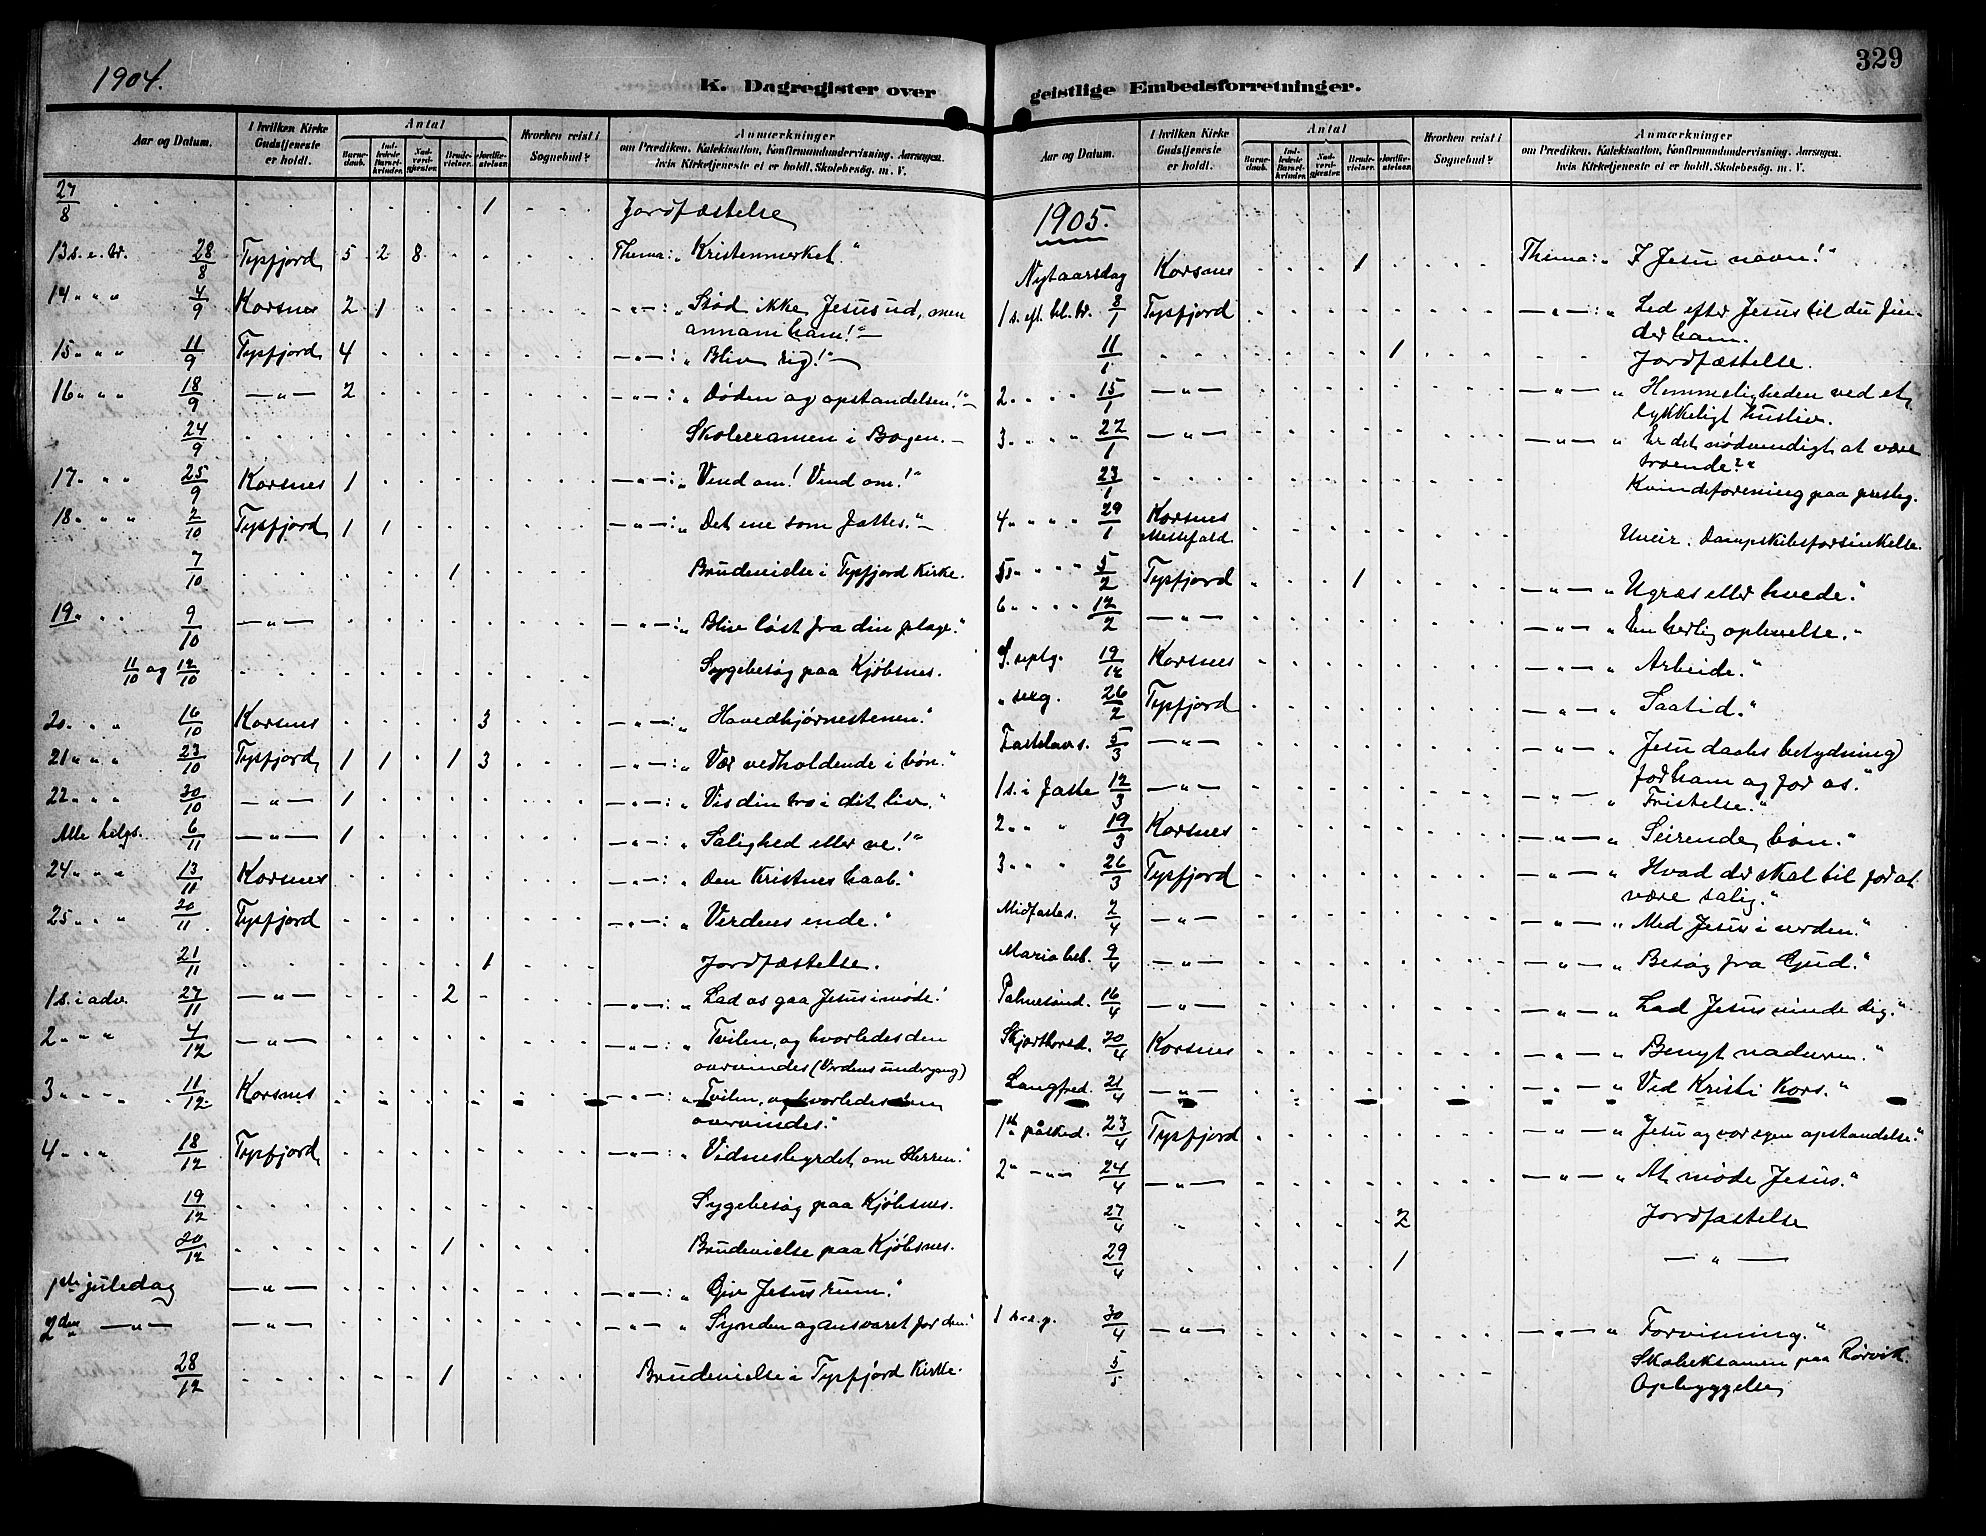 1904.
K. Dagregister over
Aar og Datum.
I hvilken Kirke Gudstjeneste er holdt.
Antal
Barnedaab.
Indledede Barselkvinder.
Nadverdgjester.
Brudevielser.
Jordfæstelser.
Hvorhen reist i Sognebud?
Anmærkninger
om Prædiken, Katekisation, Konfirmandundervisning, Aarsagen,
hvis Kirketjeneste ei er holdt, Skolebesøg, m. V.
27/8 1 Jordfæstelse
13 s. e. tr. 28/8 Tysfjord 5 2 8 Thema: „Kristenmerket."
14 „ „ 4/9 Korsnes 2 1 —„—: „Stød ikke Jesus ud, men
annam ham!"—
15 „ „ 11/9 Tysfjord 4 —„—: „Bliv rig!"—
16 „ „ 18/9 —„— 2 —„—: „Døden og opstandelsen!"—
24/9 Skoleexamen i Bogen.—
17 „ „ 25/9 Korsnes 1 —„—: „Vend om! Vend om!"
18 „ „ 2/10 Tysfjord 1 1 —„—: „Det ene som fattes."—
7/10 1 Brudevielse i Tysfjord Kirke.
19 „ „ 9/10 —„— —„—: „Bliv løst fra din plage."
11/10 og 12/10 Sygebesøg paa Kjøbsnes.
20 „ „ 16/10 Korsnes 3 —„—: „Hovedhjørnestenen."
21 „ „ 23/10 Tysfjord 1 1 1 3 —„—: „Vær vedholdende i bøn."
22 „ „ 30/10 —„— 1 —„—: „Vis din tro i dit liv."
Alle helgs. 6/11 —„— 1 —„—: „Salighed eller ve!"
24 „ „ 13/11 Korsnes —„—: „Den Kristnes haab."
25 „ „ 20/11 Tysfjord —„—: „Verdens ende."
21/11 1 Jordfæstelse.
1 s. i adv. 27/11 —„— 2 —„—: „Lad os gaa Jesus imøde!
2 „ „ 4/12 —„— —„—: „Tvilen, og hvorledes den
overvindes (Verdens undergang)
3 „ „ 11/12 Korsnes —„—: „Tvilen, og hvorledes den
overvindes."
4 „ „ 18/12 Tysfjord —„—: „Vidnesbyrdet om Herren."
19/12 Sygebesøg paa Kjøbsnes.
20/12 1 Brudevielse paa Kjøbsnes.
juledag —„— —„—: „Giv Jesus rum."
2den —„— —„— —„— „Synden og ansvaret for den."
28/12 1 Brudevielse i Tysfjord Kirke.
329
geistlige Embedsforretninger.
Aar og Datum.
I hvilken Kirke Gudstjeneste er holdt.
Antal
Barnedaab.
Indledede Barselkvinder.
Nadverdgjester.
Brudevielser.
Jordfæstelser.
Hvorhen reist i Sognebud?
Anmærkninger
om Prædiken, Katekisation, Konfirmandundervisning, Aarsagen,
hvis Kirketjeneste ei er holdt, Skolebesøg, m. V.
1905.
Nytaarsdag Korsnes 1 Thema: „I Jesu navn!"
1 s. eft. hl. tr. 8/1 Tysfjord —„—: „Led efter Jesus til du fin-
der ham.
11/1 1 Jordfæstelse.
2 „ „ 15/1 —„— —„— „Hemmeligheden ved et
lykkeligt husliv.
3 „ „ 22/1 —„— —„— „Er det nødvendigt at være
troende?"
23/1 Kvindeforening paa prestg.
4 „ „ 29/1 Korsnes Uveir. Dampskibsforsinkelse.
Messefald
5 „ „ 5/2 Tysfjord 1 —„— „Ugræs eller hvede."
6 „ „ 12/2 —„— —„— „En herlig oplevelse."
S. septg. 19/12 Korsnes —„— „Arbeide."
„ sexg. 26/2 Tysfjord —„— „Saatid."
Fastelavs. 5/3 —„— —„— „Jesu daabs betydning
for ham og for os."
1 s. i faste 12/3 —„— —„— „Fristelse."
2 „ „ 19/3 Korsnes —„— „Seirende bøn."
3 „ „ 26/3 Tysfjord —„— „Hvad der skal til for at
være salig."
Midfastes. 2/4 —„— —„— „Med Jesus i verden."
Maria beb. 9/4 —„— —„— „Besøg fra Gud."
Palmesønd. 16/4 —„— —„— „Lad Jesus vinde dig."
Skjærthorsd. 20/4 Korsnes —„— „Benyt nadveren."
Langfred. 21/4 —„— —„— „Ved Kristi Kors."
1ste påsked. 23/4 Tysfjord —„— „Jesu og vor egen opstandelse."
2 —„— 24/4 —„— —„— „At møde Jesus."
27/4 „ 2 Jordfæstelse
29/4 1 —„—
1 s. e. p. 30/4 —„— —„— „Forvisning."
5/5 Skoleksamen paa Rørvik.
Opbyggelse